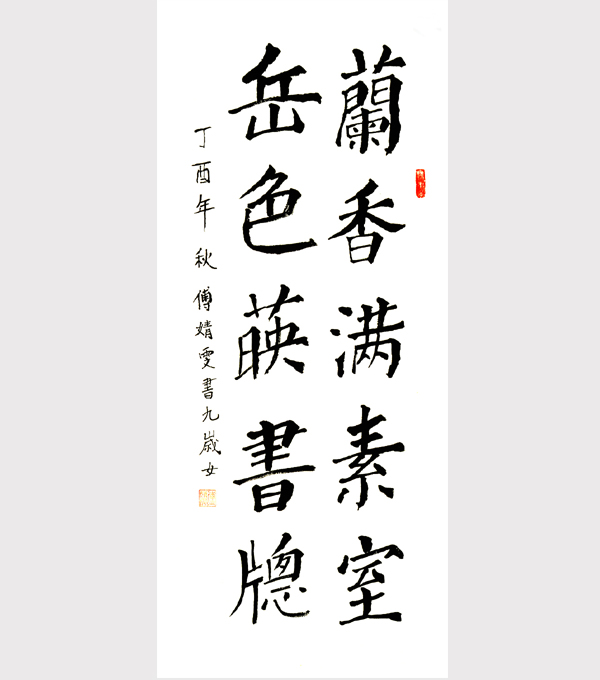 蘭香满素室
岳色暎書牎
丁酉年秋傅婧雯書九歲女